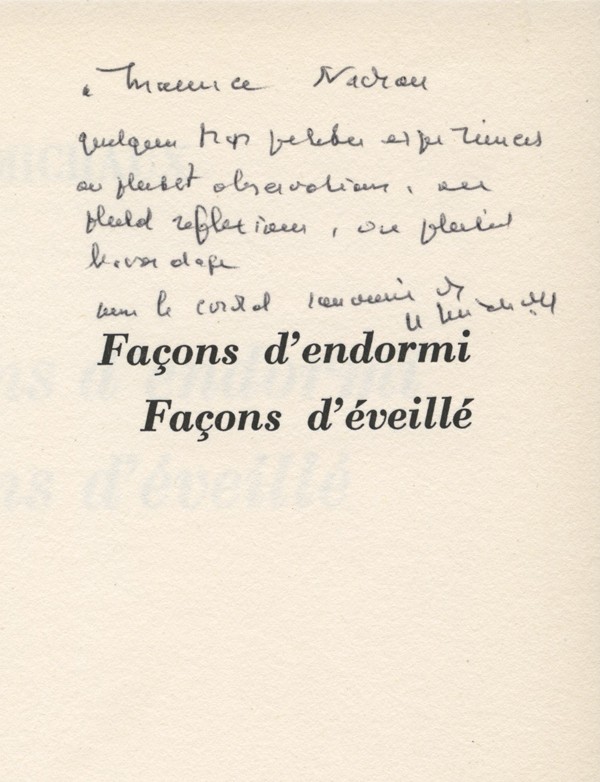 à Maurice Nadeau
quelques trop petites expériences
ou plutôt observations, ou
plutôt reflexions, ou plutôt
bavardage
avec le cordial souvenir de
H Michaux
Façons d'endormi
Façons d'éveillé